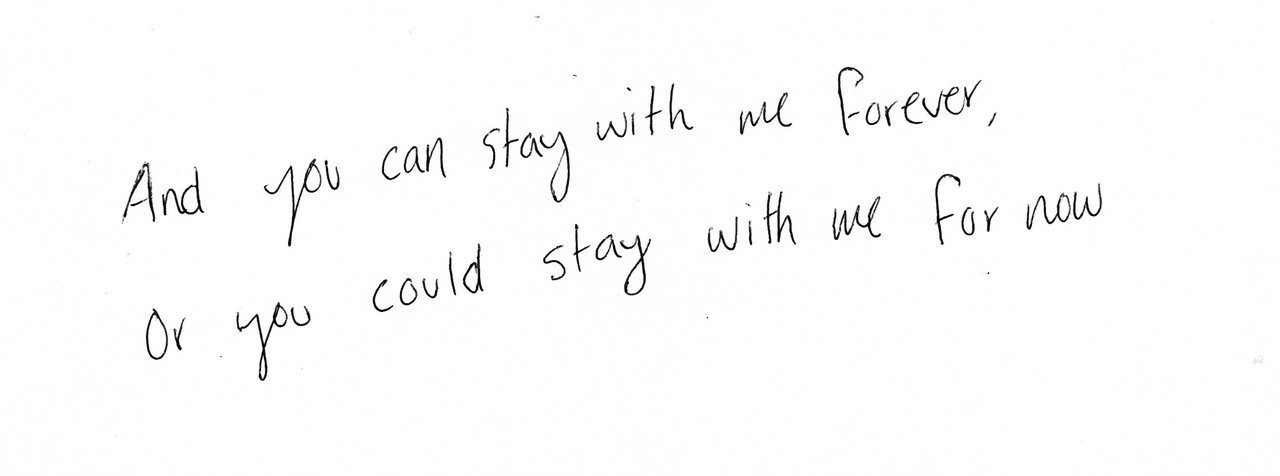 And you can stay with me forever,
Or you could stay with me for now